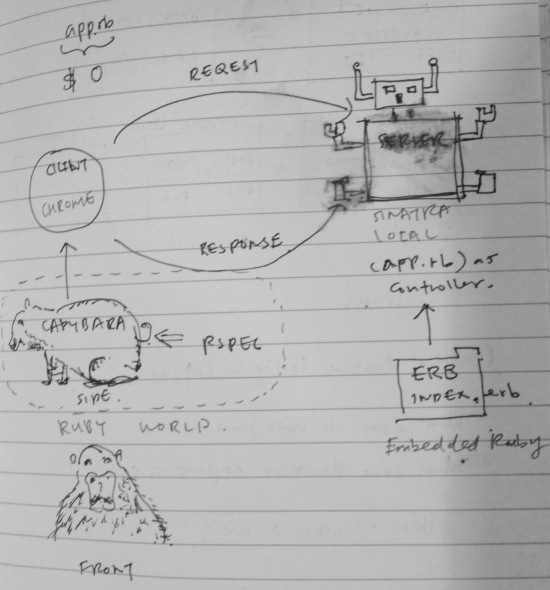 app.rb
$ 0
REQEST
CLIENT
CHROME
SERVER
SINATRA
LOCAL
(app.rb) as
controller.
RESPONSE
CAPYBARA
RSPEC
SIDE.
RUBY WORLD
ERB
INDEX.erb.
Embedded Ruby
FRONT